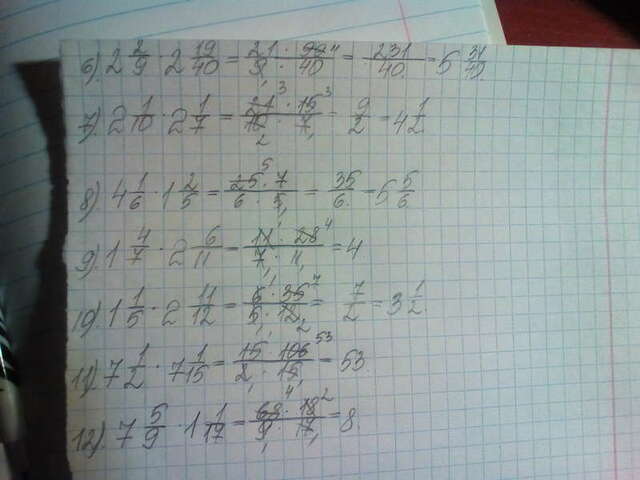 6) 2 2/9 · 2 19/40 = 21 · 99 11 / 9 1 · 40 = 231/40 = 5 31/40
7) 2 1/10 · 2 1/7 = 21 3 · 15 3 / 10 2 · 7 1 = 9/2 = 4 1/2
8) 4 1/6 · 1 2/5 = 25 5 · 7 / 6 · 5 1 = 35/6 = 5 5/6
9) 1 4/7 · 2 6/11 = 11 1 · 28 4 / 7 1 · 11 1 = 4
10) 1 1/5 · 2 11/12 = 6 1 · 35 7 / 5 1 · 12 2 = 7/2 = 3 1/2
11) 7 1/2 · 7 1/15 = 15 · 106 53 / 2 1 · 15 1 = 53
12) 7 5/9 · 1 1/17 = 68 4 · 18 2 / 9 1 · 17 1 = 8